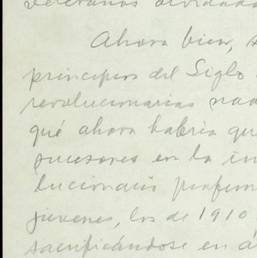 veteranos olvidado
Ahora bien, s
principios del Siglo
revolucionarios
qué ahora habría qu
sucesores en la in
lucionario
jóvenes, los de 1910
sacrificándose en a